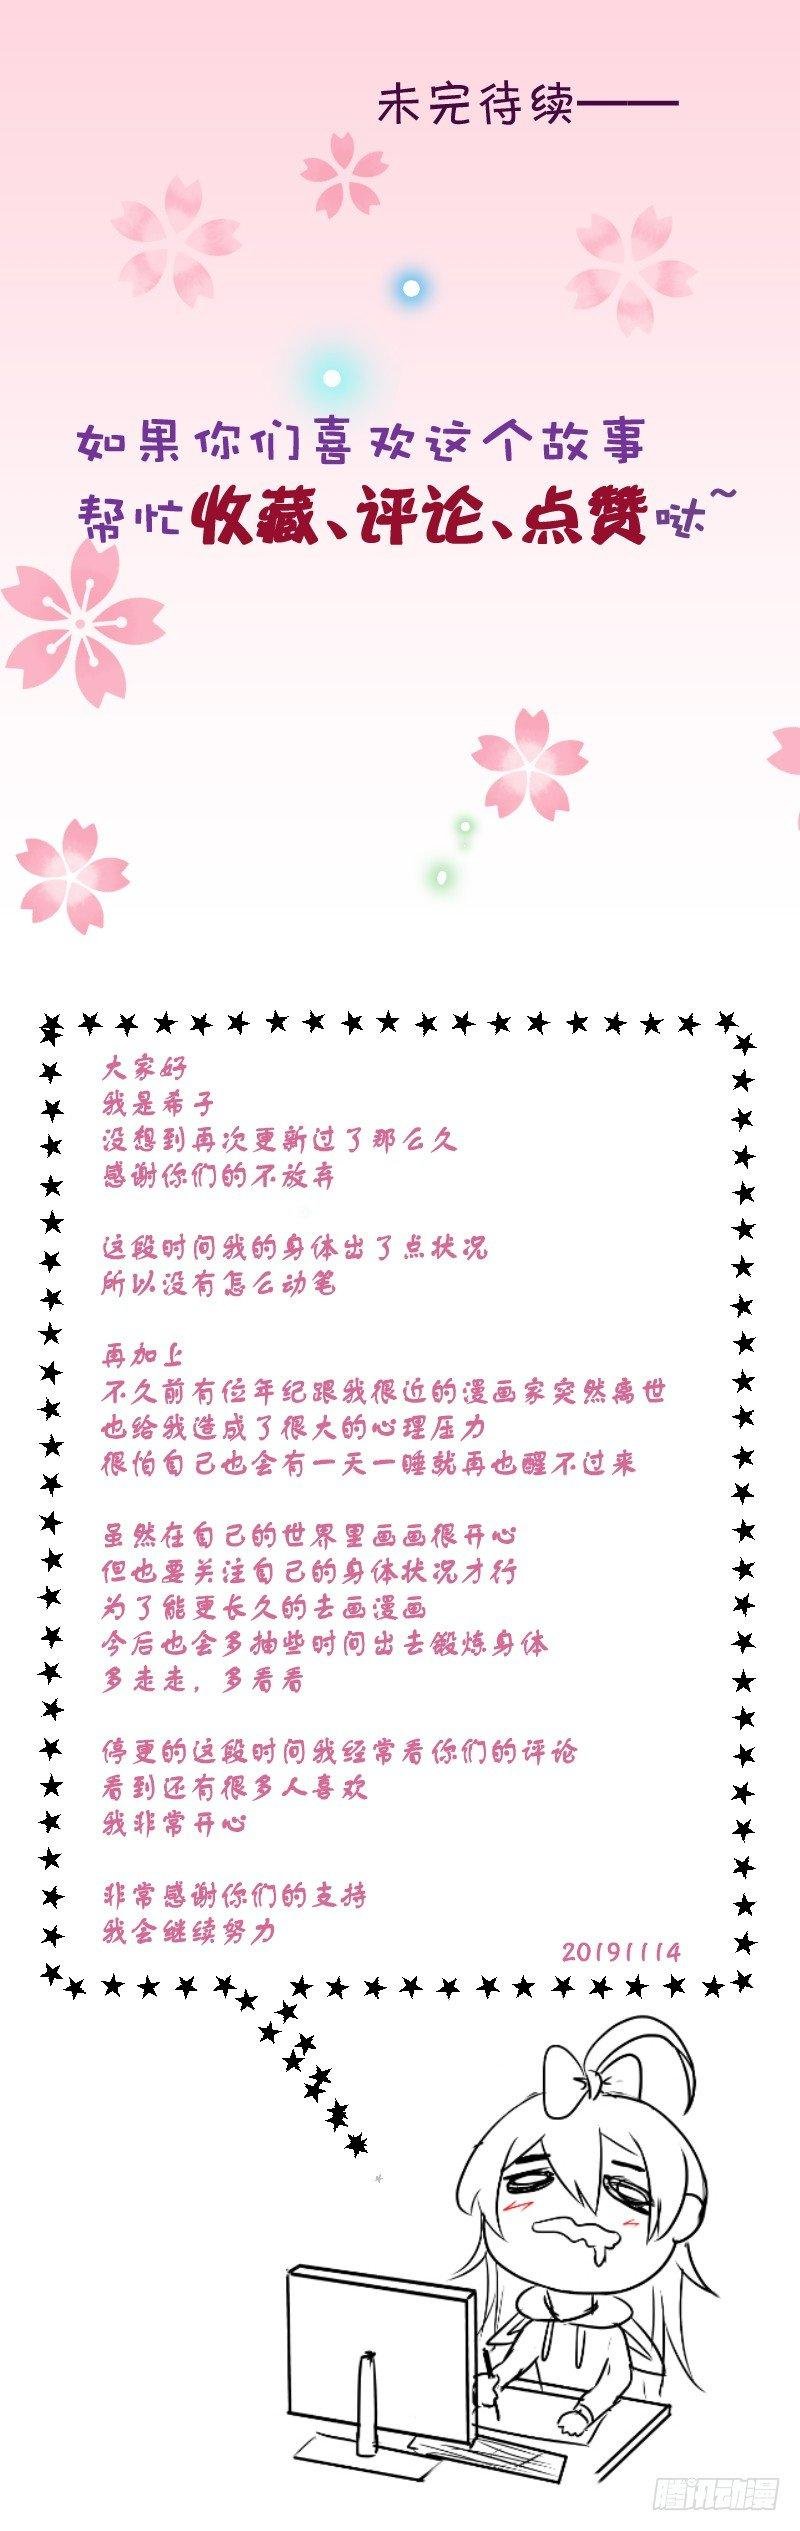 未完待续——
如果你们喜欢这个故事
帮忙收藏、评论、点赞哒~
大家好
我是希子
没想到再次更新过了那么久
感谢你们的不放弃
这段时间我的身体出了点状况
所以没有怎么动笔
再加上
不久前有位年纪跟我很近的漫画家突然离世
也给我造成了很大的心理压力
很怕自己也会有一天一睡就再也醒不过来
虽然在自己的世界里画画很开心
但也要关注自己的身体状况才行
为了能更长久的去画漫画
今后也会多抽些时间出去锻炼身体
多走走，多看看
停更的这段时间我经常看你们的评论
看到还有很多人喜欢
我非常开心
非常感谢你们的支持
我会继续努力
20191114
腾讯动漫